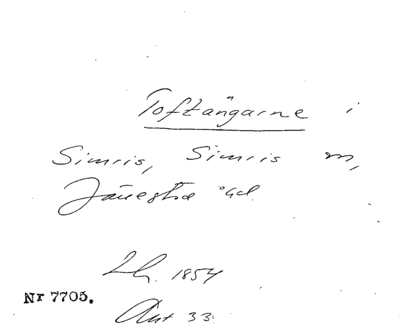 Toftängarne i
Simris, Simris m,
Järrestad
Lh. 1854
Nr 7705.
Ant 33